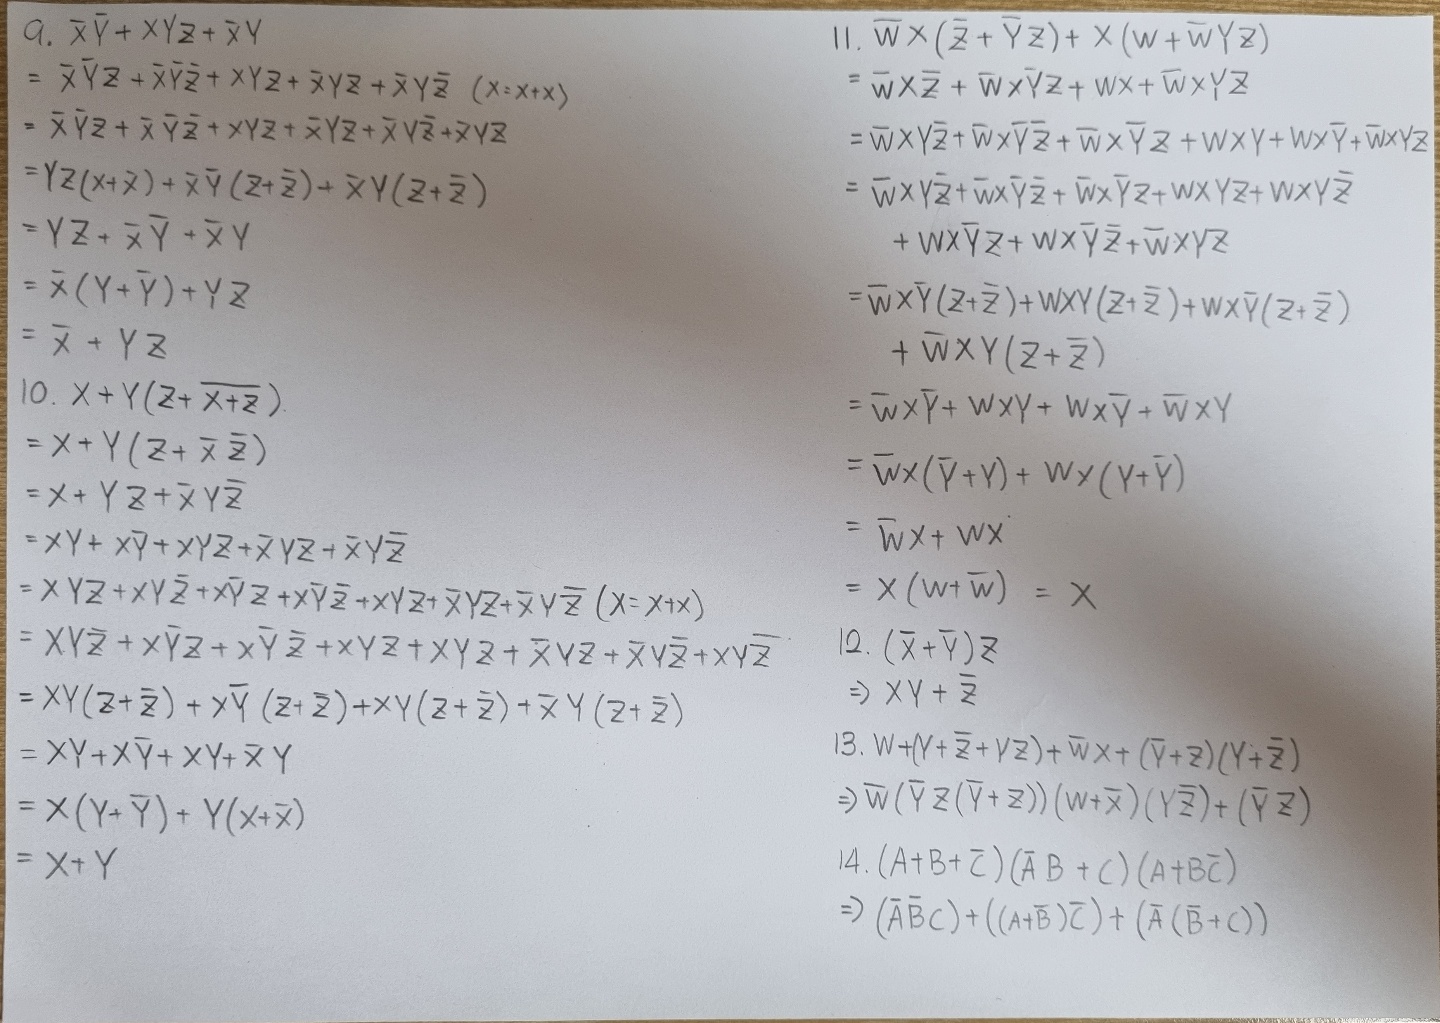 9. X̄Ȳ + XYZ + X̄Y
= X̄ȲZ + X̄ȲZ̄ + XYZ + X̄YZ + X̄YZ̄ (X=X+X)
= X̄ȲZ + X̄ȲZ̄ + XYZ + X̄YZ + X̄YZ̄ + X̄YZ
= YZ(X+X̄) + X̄Ȳ(Z+Z̄) + X̄Y(Z+Z̄)
= YZ + X̄Ȳ + X̄Y
= X̄(Y+Ȳ) + YZ
= X̄ + YZ
10. X+Y(Z+\overline{X+Z})
= X+Y(Z+X̄Z̄)
= X+YZ+X̄YZ̄
= XY+XȲ+XYZ+X̄YZ+X̄YZ̄
= XYZ+XYZ̄+XȲZ+XȲZ̄+XYZ+X̄YZ+X̄YZ̄ (X=X+X)
= XYZ̄+XȲZ+XȲZ̄+XYZ+XYZ+X̄YZ+X̄YZ̄+XYZ̄
= XY(Z+Z̄)+XȲ(Z+Z̄)+XY(Z+Z̄)+X̄Y(Z+Z̄)
= XY+XȲ+XY+X̄Y
= X(Y+Ȳ)+Y(X+X̄)
= X+Y
11. W̄X(Z̄+ȲZ)+X(W+W̄YZ)
= W̄XZ̄+W̄XȲZ+WX+W̄XYZ
= W̄XYZ̄+W̄XȲZ̄+W̄XȲZ+WXY+WXȲ+W̄XYZ
= W̄XYZ̄+W̄XȲZ̄+W̄XȲZ+WXYZ+WXYZ̄
+WXȲZ+WXȲZ̄+W̄XYZ
= W̄XȲ(Z+Z̄)+WXY(Z+Z̄)+WXȲ(Z+Z̄)
+W̄XY(Z+Z̄)
= W̄XȲ+WXY+WXȲ+W̄XY
= W̄X(Ȳ+Y)+WX(Y+Ȳ)
= W̄X+WX
= X(W+W̄) = X
12. (X̄+Ȳ)Z
⇒ XY+Z̄
13. W+(Y+Z̄+YZ)+W̄X+(Ȳ+Z)(Y+Z̄)
⇒ W̄(ȲZ(Ȳ+Z))(W+X̄)(YZ̄)+(ȲZ)
14. (A+B+C̄)(ĀB+C)(A+BC̄)
⇒ (ĀB̄C)+((A+B̄)C̄)+(Ā(B̄+C))